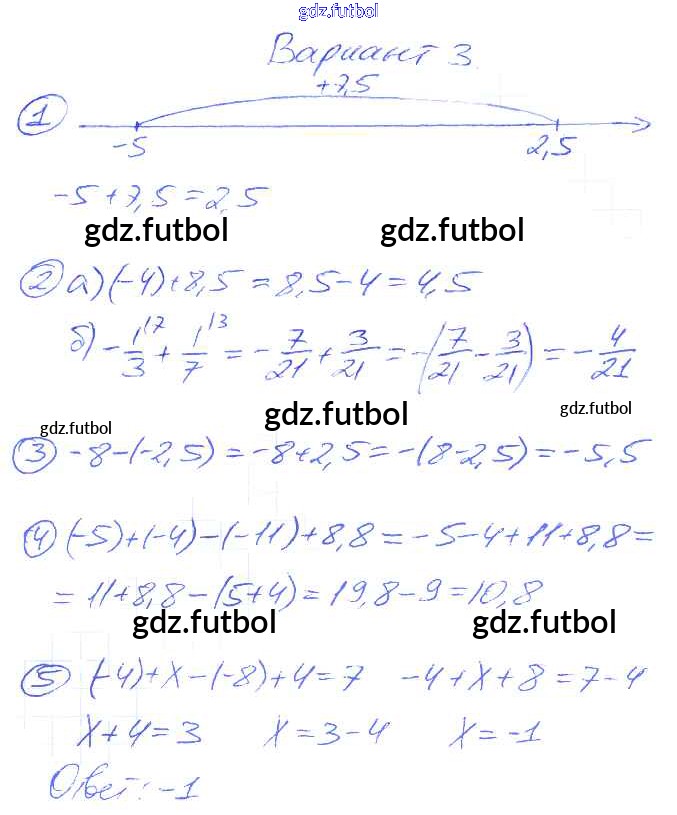 gdz.futbol
Вариант 3.
+7,5
1
-5 2,5
-5+7,5=2,5
gdz.futbol gdz.futbol
2 а) (-4)+8,5=8,5-4=4,5
б) -1/3 + 1/7 = -7/21 + 3/21 = -(7/21 - 3/21) = -4/21
gdz.futbol gdz.futbol
gdz.futbol
3 -8-(-2,5)=-8+2,5=-(8-2,5)=-5,5
4 (-5)+(-4)-(-11)+8,8=-5-4+11+8,8=
=11+8,8-(5+4)=19,8-9=10,8
gdz.futbol gdz.futbol
5 (-4)+x-(-8)+4=7 -4+x+8=7-4
x+4=3 x=3-4 x=-1
Ответ: -1